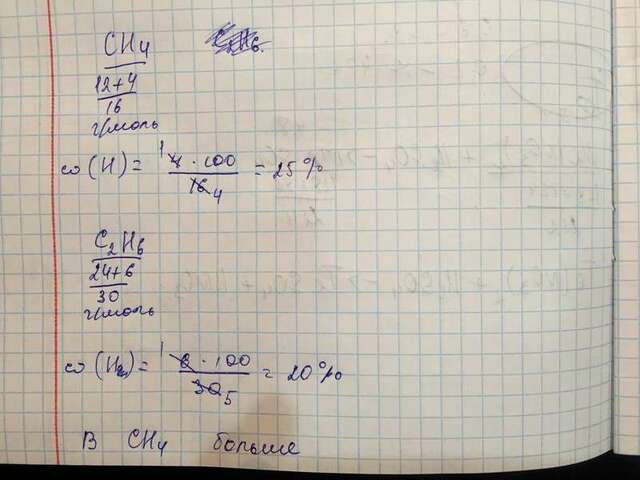 CH4
12+4
16
г/моль
ω(H) = 4 · 100 / 16 4 = 25%
C2H6
24+6
30
г/моль
ω(H2) = 1 6 · 100 / 30 5 = 20%
В CH4 больше